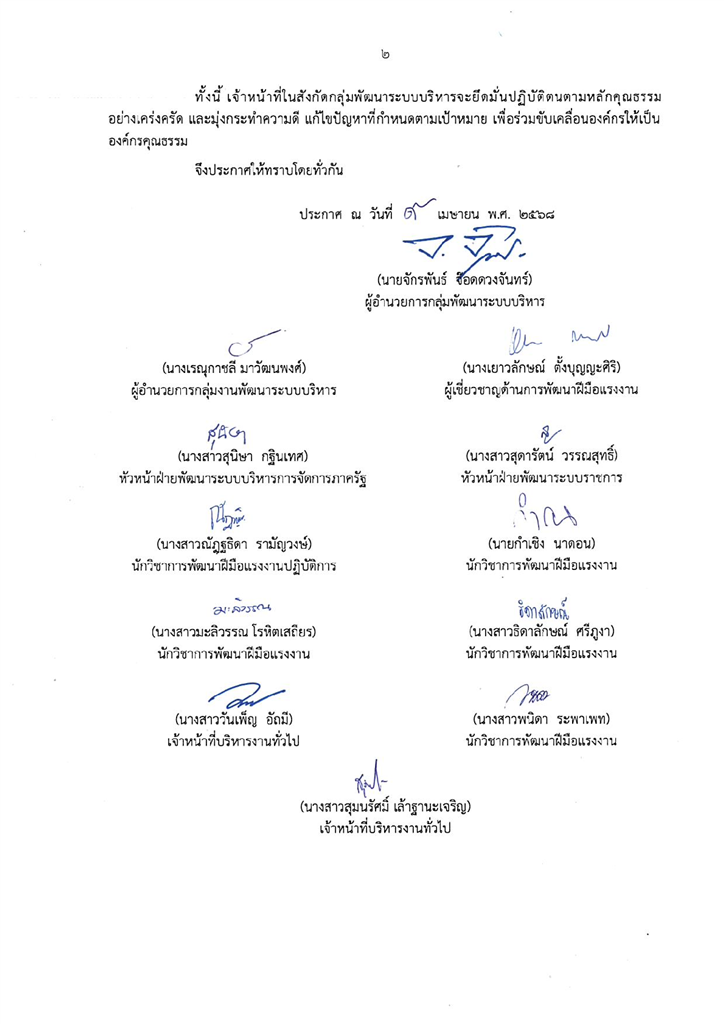 ๒
ทั้งนี้ เจ้าหน้าที่ในสังกัดกลุ่มพัฒนาระบบบริหารจะยึดมั่นปฏิบัติตนตามหลักคุณธรรม
อย่างเคร่งครัด และมุ่งกระทำความดี แก้ไขปัญหาที่กำหนดตามเป้าหมาย เพื่อร่วมขับเคลื่อนองค์กรให้เป็น
องค์กรคุณธรรม
จึงประกาศให้ทราบโดยทั่วกัน
ประกาศ ณ วันที่ เมษายน พ.ศ. ๒๕๖๘
(นายจักรพันธ์ ซ๊อดดวงจันทร์)
ผู้อำนวยการกลุ่มพัฒนาระบบบริหาร
(นางเรณุกาชลี มาวัฒนพงศ์) (นางเยาวลักษณ์ ตั้งบุญญะศิริ)
ผู้อำนวยการกลุ่มงานพัฒนาระบบบริหาร ผู้เชี่ยวชาญด้านการพัฒนาฝีมือแรงงาน
สุนิษา
(นางสาวสุนิษา กฐินเทศ) (นางสาวสุดารัตน์ วรรณสุทธิ์)
หัวหน้าฝ่ายพัฒนาระบบบริหารการจัดการภาครัฐ หัวหน้าฝ่ายพัฒนาระบบราชการ
(นางสาวณัฏฐธิดา รามัญวงษ์) (นายกำเชิง นาดอน)
นักวิชาการพัฒนาฝีมือแรงงานปฏิบัติการ นักวิชาการพัฒนาฝีมือแรงงาน
มะลิวรรณ ธิดาลักษณ์
(นางสาวมะลิวรรณ โรหิตเสถียร) (นางสาวธิดาลักษณ์ ศรีภูงา)
นักวิชาการพัฒนาฝีมือแรงงาน นักวิชาการพัฒนาฝีมือแรงงาน
(นางสาววันเพ็ญ อัถมี) (นางสาวพนิดา ระพาเพท)
เจ้าหน้าที่บริหารงานทั่วไป นักวิชาการพัฒนาฝีมือแรงงาน
(นางสาวสุมนรัศมิ์ เล้าฐานะเจริญ)
เจ้าหน้าที่บริหารงานทั่วไป